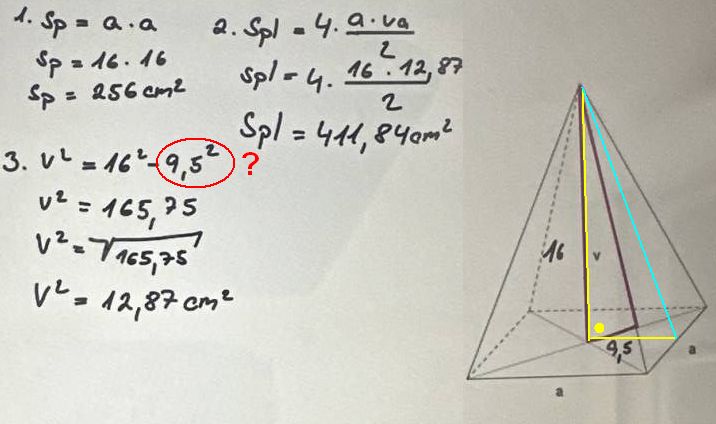 1. Sp = a . a
Sp = 16 . 16
Sp = 256 cm²
2. Spl = 4 . a . va / 2
Spl = 4 . 16 . 12,87 / 2
Spl = 411,84 cm²
3. v² = 16² - 9,5² ?
v² = 165,75
v² = √165,75
v² = 12,87 cm²
16
v
9,5
a
a